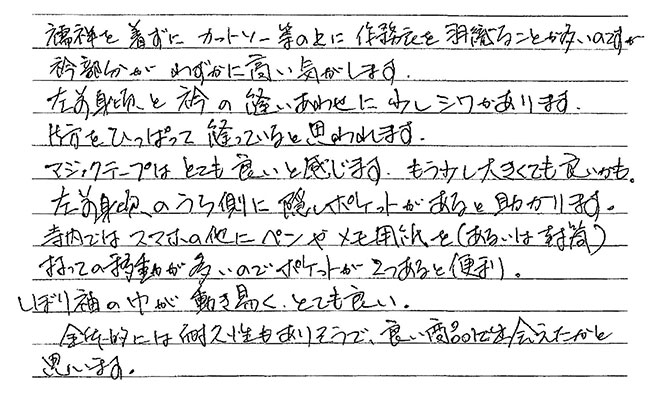 襦袢を着ずにカットソー等の上に作務衣を羽織ることが多いのですが
衿部分がわずかに高い気がします.
左前身頃、と衿の縫いあわせに少しシワがあります.
片方をひっぱって縫っていると思われます.
マジックテープはとても良いと感じます. もう少し大きくても良いかも。
左前身頃、のうち側に隠しポケットがあると助かります。
寺内ではスマホの他にペンやメモ用紙を(あるいは封筒)
持っての移動が多いのでポケットが2つあると便利.
しぼり袖の巾が動き易く、とても良い.
全体的には耐久性もありそうで、良い商品に出会えたかと
思います.